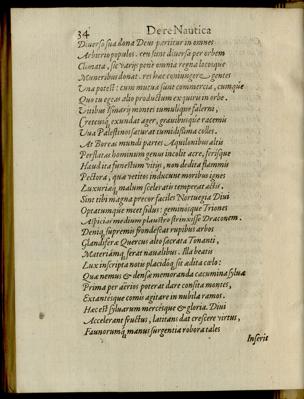 34 De re Nautica
Diverso sua dona Deus partitur in omnes
Arbitrio populos. ceu sunt diversa per orbem
Climata, sic varijs petit omnia regna locosque
Muneribus donat. res haec coniungere gentes
Una potest: cum mutua sunt commercia, cumque
Quo tu eges alio productum ex quiris in orbe.
Vitibus Ismarij montes tumulique Falerni,
Cretensiq exundat ager, gravibusque racemis
Uva Palestinos saturat tumidissima colles.
At Boreas mundi partes Aquilonibus altis
Perflatas hominum genus incolit acre, ferisque
Haud ita funestum vitijs, non dedita flammis
Pectora, quae vetitos inducunt moribus ignes
Luxuriaq malum sceleratis temperat actis.
Sint tibi magna precor faciles Nortuegia Divi
Optatumque meet sidus: geminosque Triones
Aspicias medium plaustro strinxisse Draconem.
Deniq supremis frondescat rupibus arbos
Glandifera Quercus alto sacrata Tonanti,
Materiamq ferat navalibus. Illa beatis
Lux inscripta notis placidoq sit addita celo:
Qua nemus & densae memoranda cacumina sylvae
Prima per aërios poterat dare consita montes,
Extantesque comis agitare in nubila ramos.
Haec est sylvarum mercesque & gloria. Divi
Accelerant fructus, latitans dat crescere virtus,
Faunorumq manus surgentia robora tales
Inserit